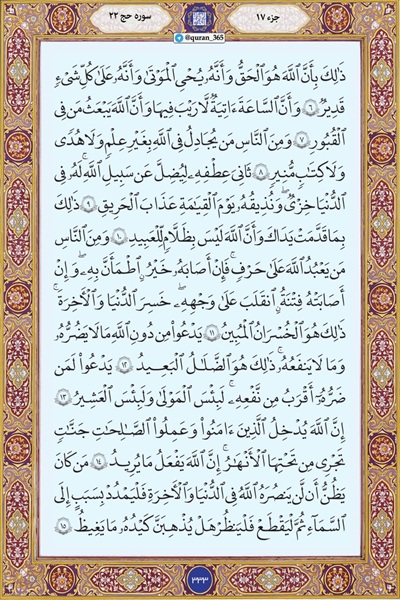 جزء ۱۷
@quran_365
سوره حج ۲۲
ذَٰلِكَ بِأَنَّ ٱللَّهَ هُوَ ٱلْحَقُّ وَأَنَّهُۥ يُحْىِ ٱلْمَوْتَىٰ وَأَنَّهُۥ عَلَىٰ كُلِّ شَىْءٍ
قَدِيرٌ ۝٦ وَأَنَّ ٱلسَّاعَةَ ءَاتِيَةٌ لَّا رَيْبَ فِيهَا وَأَنَّ ٱللَّهَ يَبْعَثُ مَن فِى
ٱلْقُبُورِ ۝٧ وَمِنَ ٱلنَّاسِ مَن يُجَٰدِلُ فِى ٱللَّهِ بِغَيْرِ عِلْمٍ وَلَا هُدًى
وَلَا كِتَٰبٍ مُّنِيرٍ ۝٨ ثَانِىَ عِطْفِهِۦ لِيُضِلَّ عَن سَبِيلِ ٱللَّهِ ۖ لَهُۥ فِى
ٱلدُّنْيَا خِزْىٌ ۖ وَنُذِيقُهُۥ يَوْمَ ٱلْقِيَٰمَةِ عَذَابَ ٱلْحَرِيقِ ۝٩ ذَٰلِكَ
بِمَا قَدَّمَتْ يَدَاكَ وَأَنَّ ٱللَّهَ لَيْسَ بِظَلَّٰمٍ لِّلْعَبِيدِ ۝١٠ وَمِنَ ٱلنَّاسِ
مَن يَعْبُدُ ٱللَّهَ عَلَىٰ حَرْفٍ ۖ فَإِنْ أَصَابَهُۥ خَيْرٌ ٱطْمَأَنَّ بِهِۦ ۖ وَإِنْ
أَصَابَتْهُ فِتْنَةٌ ٱنقَلَبَ عَلَىٰ وَجْهِهِۦ خَسِرَ ٱلدُّنْيَا وَٱلْءَاخِرَةَ ۚ
ذَٰلِكَ هُوَ ٱلْخُسْرَانُ ٱلْمُبِينُ ۝١١ يَدْعُوا۟ مِن دُونِ ٱللَّهِ مَا لَا يَضُرُّهُۥ
وَمَا لَا يَنفَعُهُۥ ۚ ذَٰلِكَ هُوَ ٱلضَّلَٰلُ ٱلْبَعِيدُ ۝١٢ يَدْعُوا۟ لَمَن
ضَرُّهُۥٓ أَقْرَبُ مِن نَّفْعِهِۦ ۚ لَبِئْسَ ٱلْمَوْلَىٰ وَلَبِئْسَ ٱلْعَشِيرُ ۝١٣
إِنَّ ٱللَّهَ يُدْخِلُ ٱلَّذِينَ ءَامَنُوا۟ وَعَمِلُوا۟ ٱلصَّٰلِحَٰتِ جَنَّٰتٍ
تَجْرِى مِن تَحْتِهَا ٱلْأَنْهَٰرُ ۚ إِنَّ ٱللَّهَ يَفْعَلُ مَا يُرِيدُ ۝١٤ مَن كَانَ
يَظُنُّ أَن لَّن يَنصُرَهُ ٱللَّهُ فِى ٱلدُّنْيَا وَٱلْءَاخِرَةِ فَلْيَمْدُدْ بِسَبَبٍ إِلَى
ٱلسَّمَآءِ ثُمَّ لْيَقْطَعْ فَلْيَنظُرْ هَلْ يُذْهِبَنَّ كَيْدُهُۥ مَا يَغِيظُ ۝١٥
۳۳۳